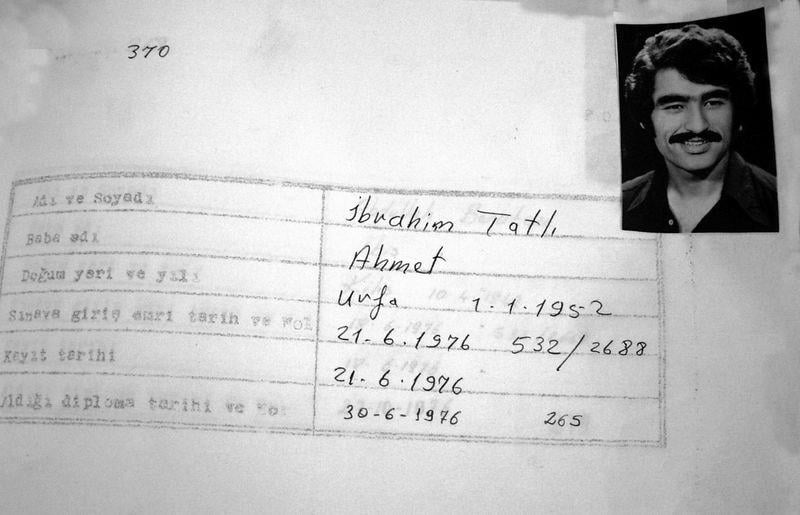 370
Adı ve Soyadı İbrahim Tatlı
Baba adı Ahmet
Doğum yeri ve yılı Urfa 1.1.1952
Sınava giriş emri tarih ve No: 21.6.1976 532/2688
Kayıt tarihi 21.6.1976
Aldığı diploma tarihi ve No: 30-6-1976 265